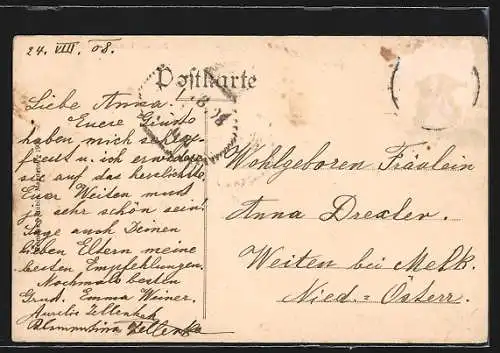 24. VIII. 08.
Postkarte
Liebe Anna.
Eure Grüße
haben mich sehr ge-
freut u. ich erwidere
sie auf das herzlichste
Euer Weiten muß
ja sehr schön sein!
Sage auch Deinen
lieben Eltern meine
besten Empfehlungen.
Nochmals besten
Gruß. Emma Weiner.
Aurelie Zellenka
Zellenka
Wohlgeboren Fräulein
Anna Drexler.
Weiten bei Melk.
Nied. = Österr.